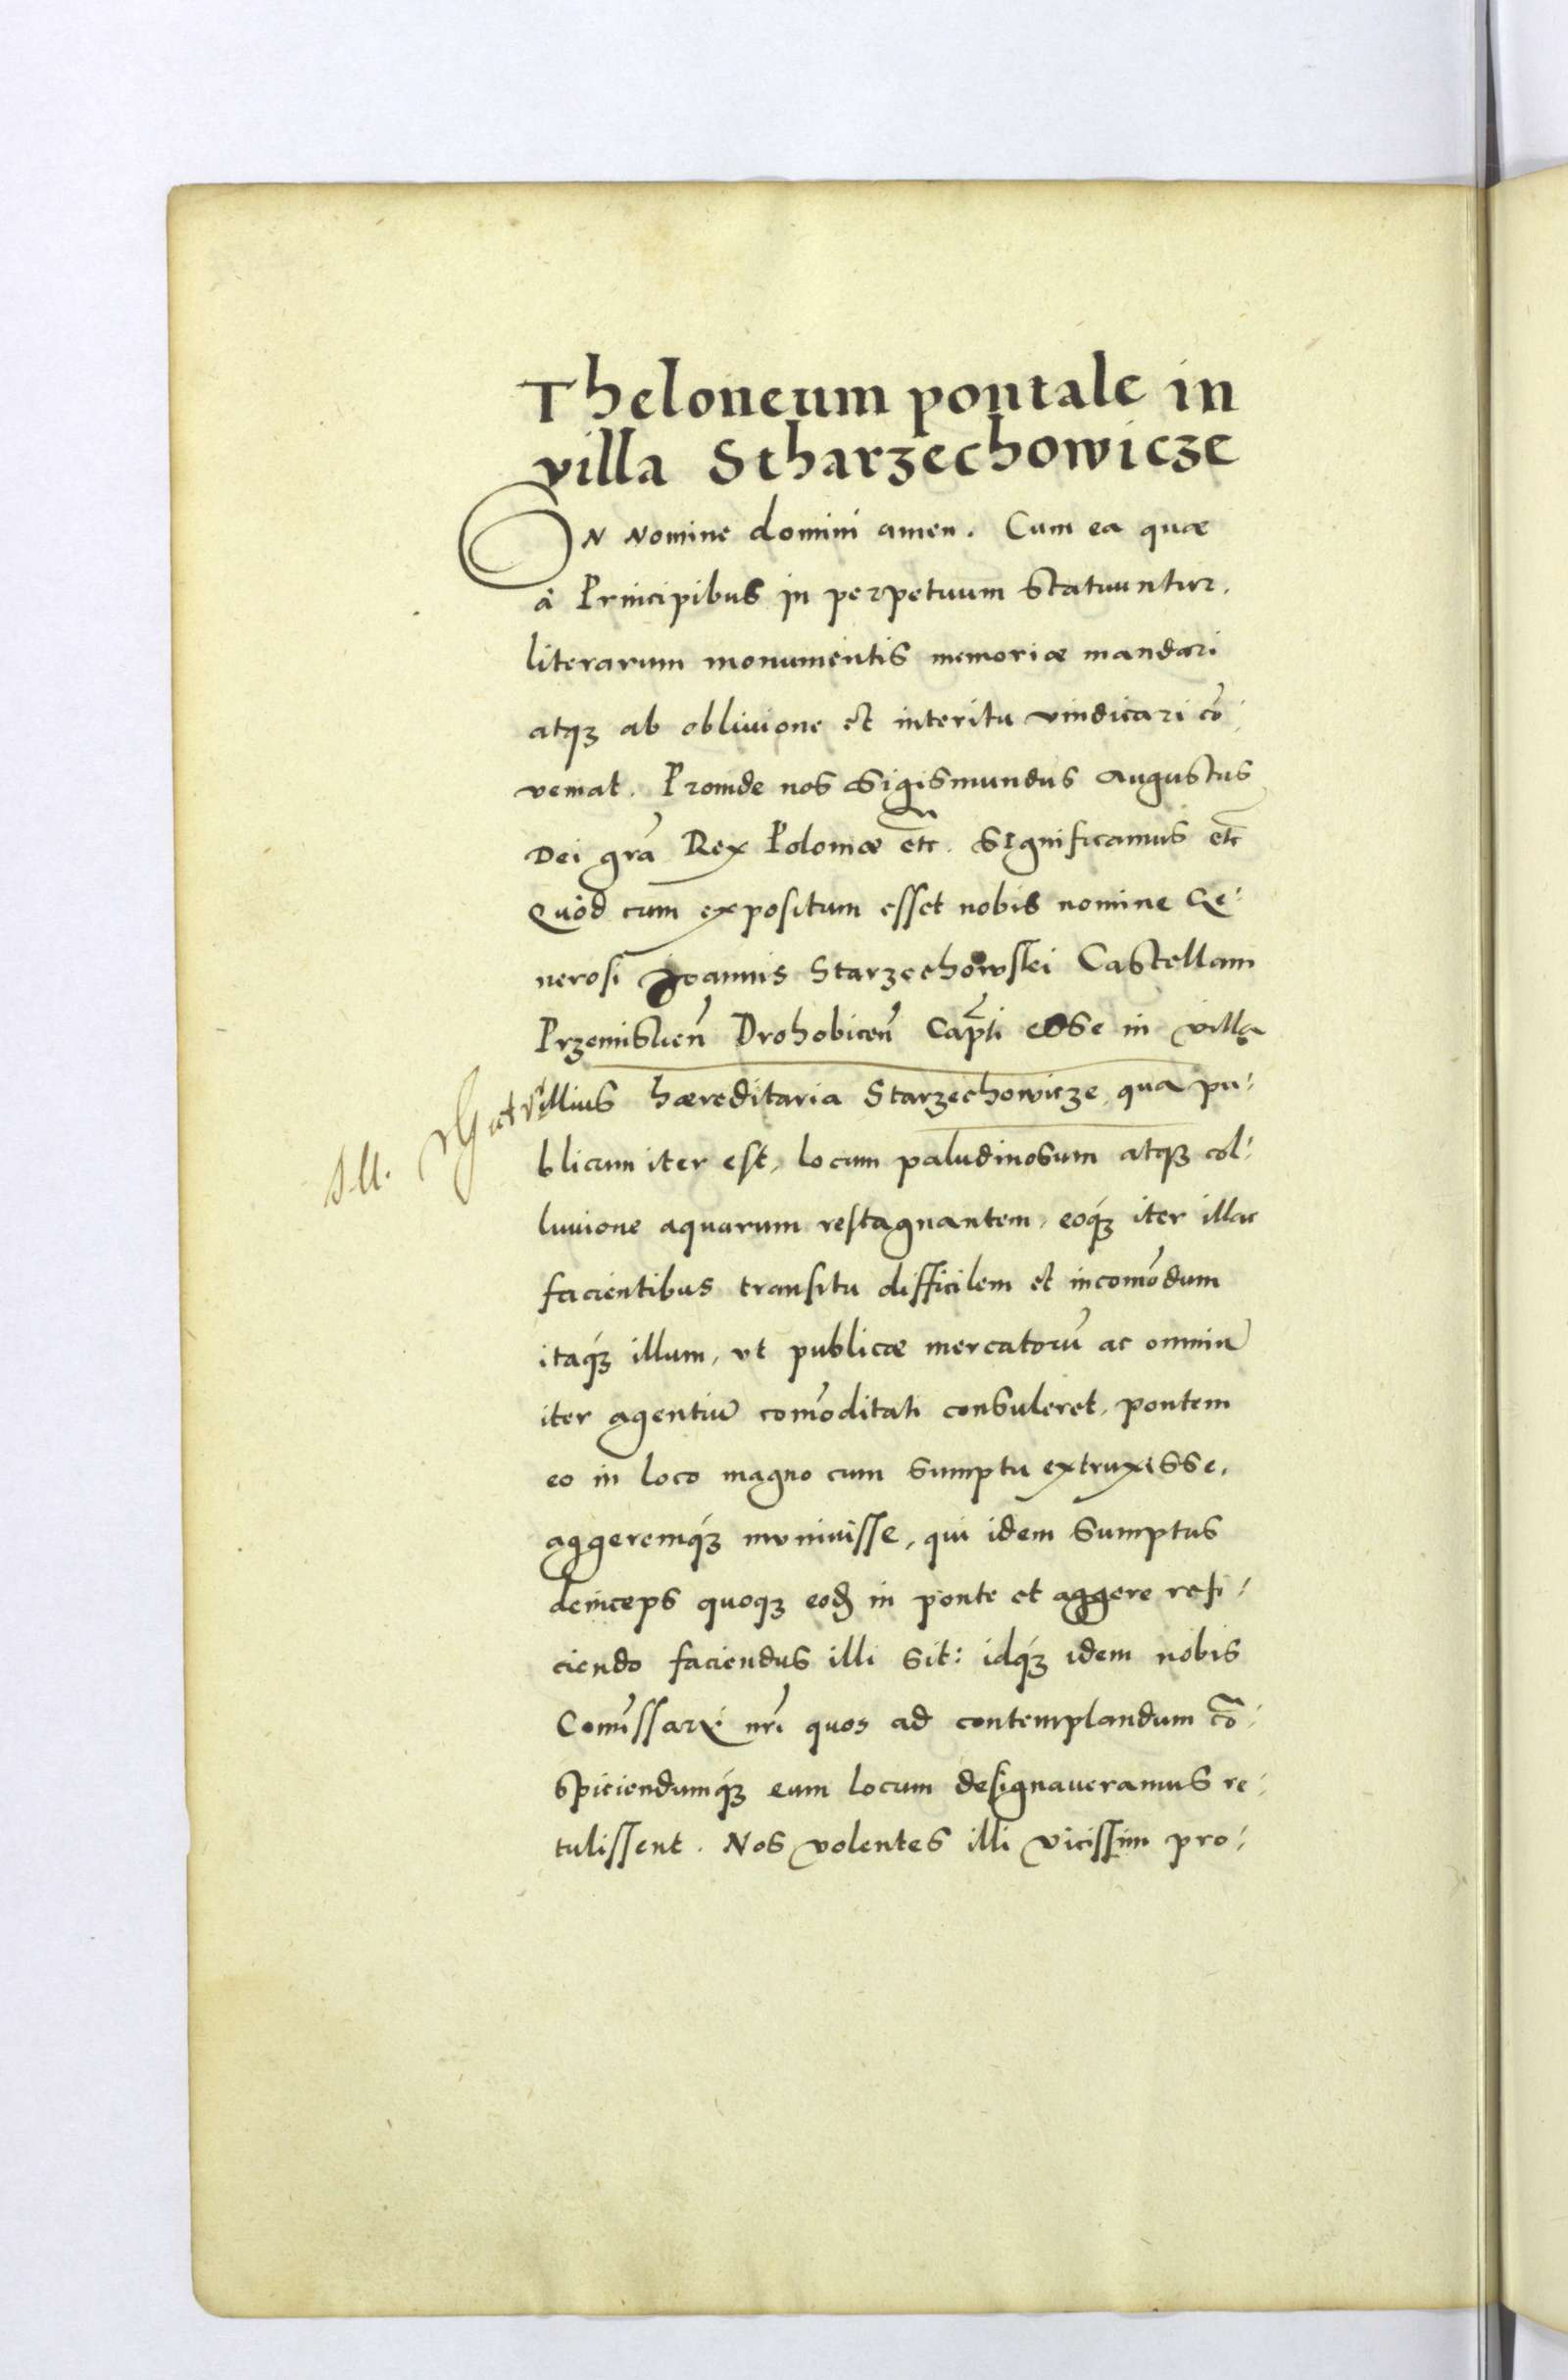 Theloneum pontale in
villa Stharzechowicze
IN Nomine domini amen. Cum ea quæ
à Principibus in perpetuum statuuntur,
literarum monumentis memoriæ mandari
atq; ab obliuione et interitu vindicari cō-
veniat. Proinde nos Sigismundus Augustus
Dei grā Rex Poloniæ etc. Significamus etc
Quòd cum expositum esset nobis nomine Ge-
nerosi Joannis Starzechowski Castellani
Przemislień Drohobiceń Capti esse in villa
illius hæreditaria Starzechowicze, qua pu-
blicum iter est, locum paludinosum atq; col-
luuione aquarum restagnantem, eoq́; iter illac
facientibus transitu difficilem et incomōdum
itaq́; illum, vt publicæ mercatorū ac omniū
iter agentiū comōditati consuleret, pontem
eo in loco magno cum sumptu extruxisse,
aggeremq́; muniuisse, qui idem sumptus
deinceps quoq; eod in ponte et aggere refi-
ciendo faciendus illi sit: idq́; idem nobis
Comissarij nrī quos ad contemplandum cō-
spiciendumq́; eum locum designaueramus re-
tulissent. Nos volentes illi vicissim pro-